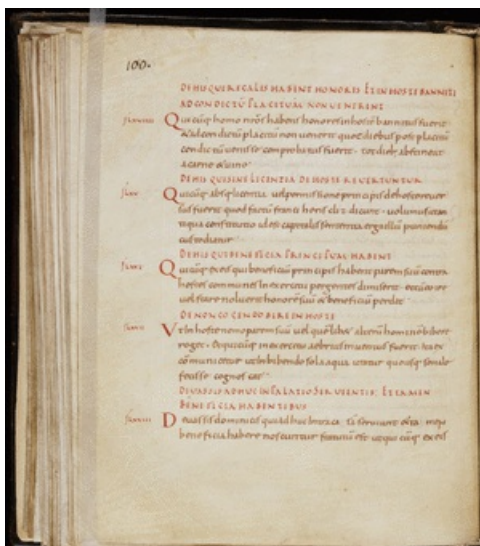 100.
DE HIS QUI REGALIS HABENT HONORIS ET IN HOSTE BANNITI
AD CONDICTŪ PLACITUM NON VENERINT
Quicūq; homo nrōs habens in hoste bannitus fuerit
& ad condictū placitū non venerit quot diebus post placitū
condictū venisse comprobatus fuerit tot dieb; abstineat
a carne & vino
DE HIS QUI SINE LICENTIA DE HOSTE REVERTUNTUR
Quicūq; absq; licentia vel permissione principis de hoste rever
sus fuerit quod factū franci heris liz dicunt volumus ut an
tiqua constitutio id est capitalis sententia erga illū puniendū
custodiatur
DE HIS QUI BENEFICIA PRINCIPUM HABENT
Quicūq; ex eis qui beneficiū principis habent parem suū contra
hostes communes in exercitu pergentes dimiserit & cū eo ire
vel stare noluerit honorē suū & beneficiū perdat
DE NON COGENDO BIBERE IN HOSTE
Ut in hoste nemo parem suū vel quēlib& alterū hominē bibere
roget & quicūq; in exercitu aebrius inventus fuerit ita ex
cōmunicetur ut in bibendo sola aqua utatur quousq; se male
fecisse cognoscat
DE VASSIS ADHUC IN PALATIO SERVIENTIB; ET TAMEN
BENEFICIA HABENTIBUS
De vassis dominicis qui adhuc intra casā serviunt
beneficia habere noscuntur statutū est ut quicūq; ex eis